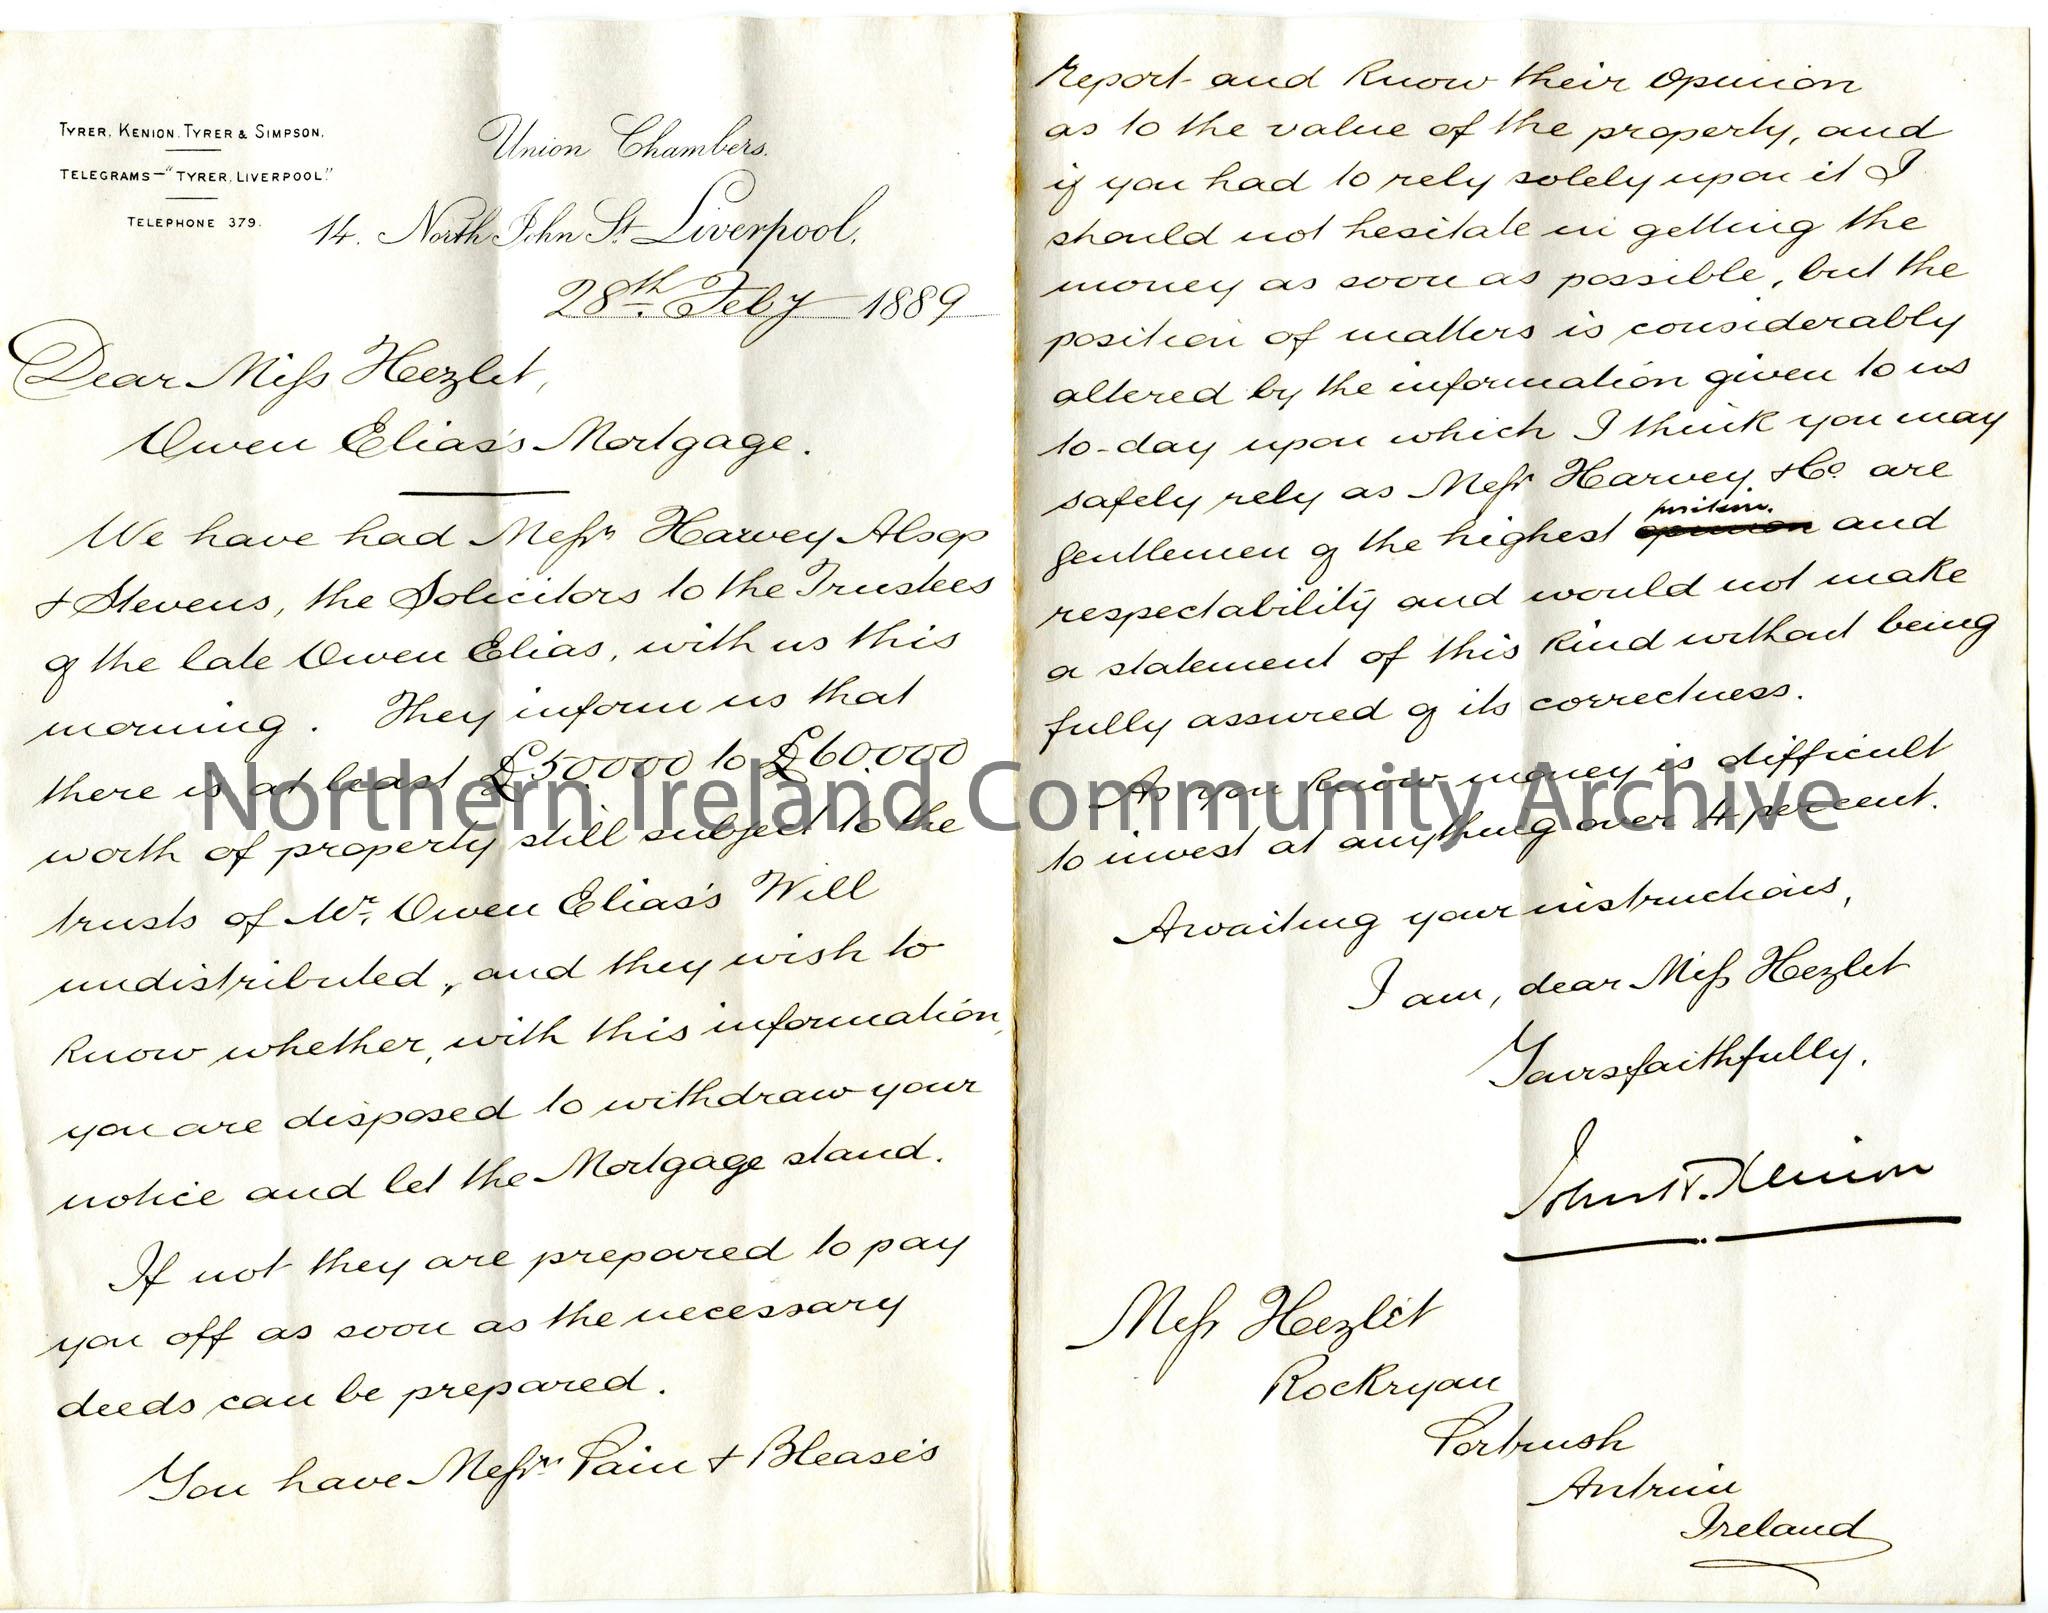 TYRER, KENION, TYRER & SIMPSON.
TELEGRAMS—"TYRER, LIVERPOOL."
TELEPHONE 379.
Union Chambers.
14. North John St. Liverpool,
28th Feby 1889
Dear Miss Hezlet,
Owen Elias's Mortgage.
We have had Messrs Harvey Alsop
& Stevens, the Solicitors to the Trustees
of the late Owen Elias, with us this
morning. They inform us that
there is at least £50.000 to £60.000
worth of property still subject to the
trusts of Mr. Owen Elias's Will
undistributed, and they wish to
know whether, with this information,
you are disposed to withdraw your
notice and let the Mortgage stand.
If not they are prepared to pay
you off as soon as the necessary
deeds can be prepared.
You have Messrs Pain & Blease's
report and know their opinion
as to the value of the property, and
if you had to rely solely upon it I
should not hesitate in getting the
money as soon as possible, but the
position of matters is considerably
altered by the information given to us
to-day upon which I think you may
safely rely as Messrs Harvey & Co. are
position.
gentlemen of the highest opinion and
respectability and would not make
a statement of this kind without being
fully assured of its correctness.
As you know money is difficult
to invest at anything over 4 per cent.
Awaiting your instructions,
I am, dear Miss Hezlet
Yours faithfully,
Kenion
Miss Hezlet
Rockryan
Portrush
Antrim
Ireland
Northern Ireland Community Archive